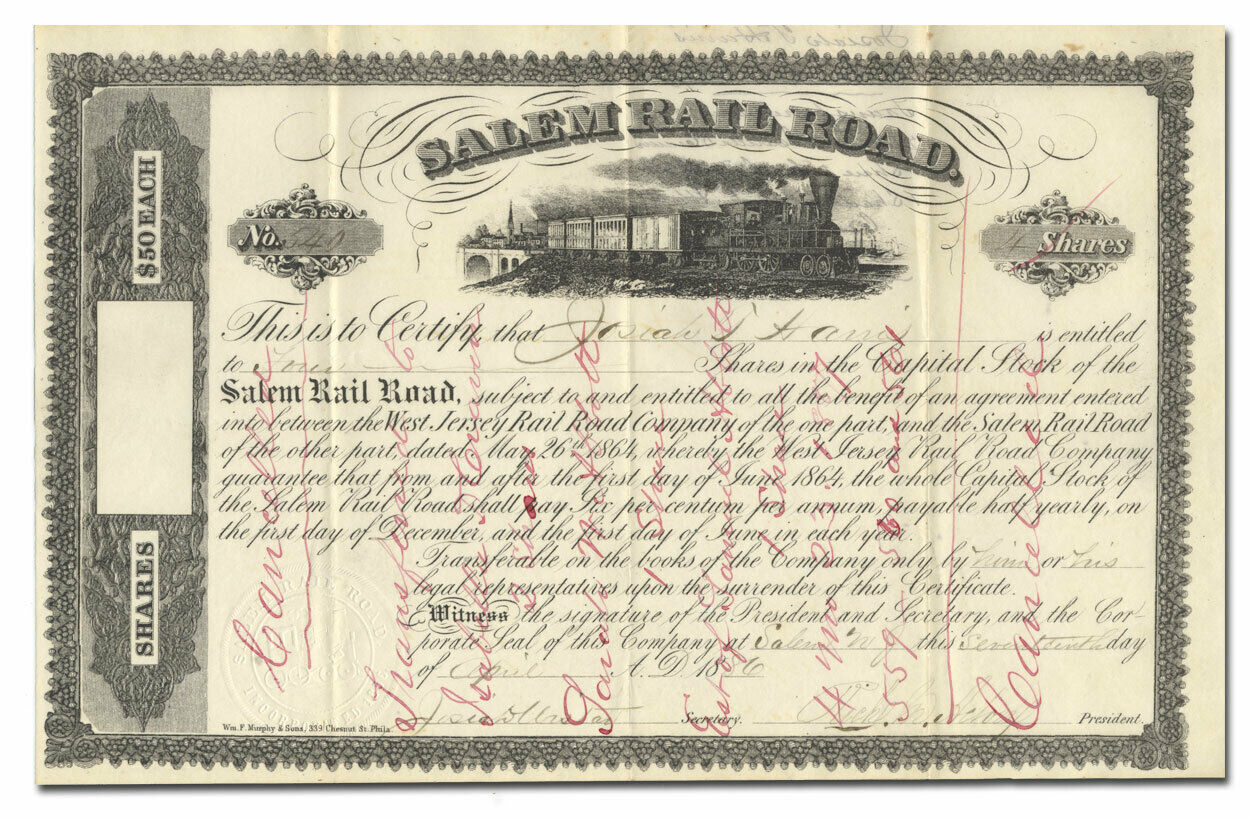 SALEM RAIL ROAD.
$50 EACH
SHARES
No. 640
4 Shares
This is to Certify, that Josiah T Harris is entitled
to Four Shares in the Capital Stock of the
Salem Rail Road, subject to and entitled to all the benefit of an agreement entered
into between the West Jersey Rail Road Company of the one part, and the Salem Rail Road
of the other part, dated May 26th 1864, whereby the West Jersey Rail Road Company
guarantee that from and after the first day of June 1864, the whole Capital Stock of
the Salem Rail Road shall pay Six per centum per annum, payable half yearly, on
the first day of December, and the first day of June in each year.
Transferable on the books of the Company only by him or his
legal representatives upon the surrender of this Certificate.
Witness the signature of the President and Secretary, and the Cor-
porate Seal of this Company at Salem N J this Seventeenth day
of April A. D. 1866
Secretary.
President.
Wm. F. Murphy & Sons, 339 Chesnut St. Phila.
Cancelled
Transferred to
1 Share
1 Share
Cancelled